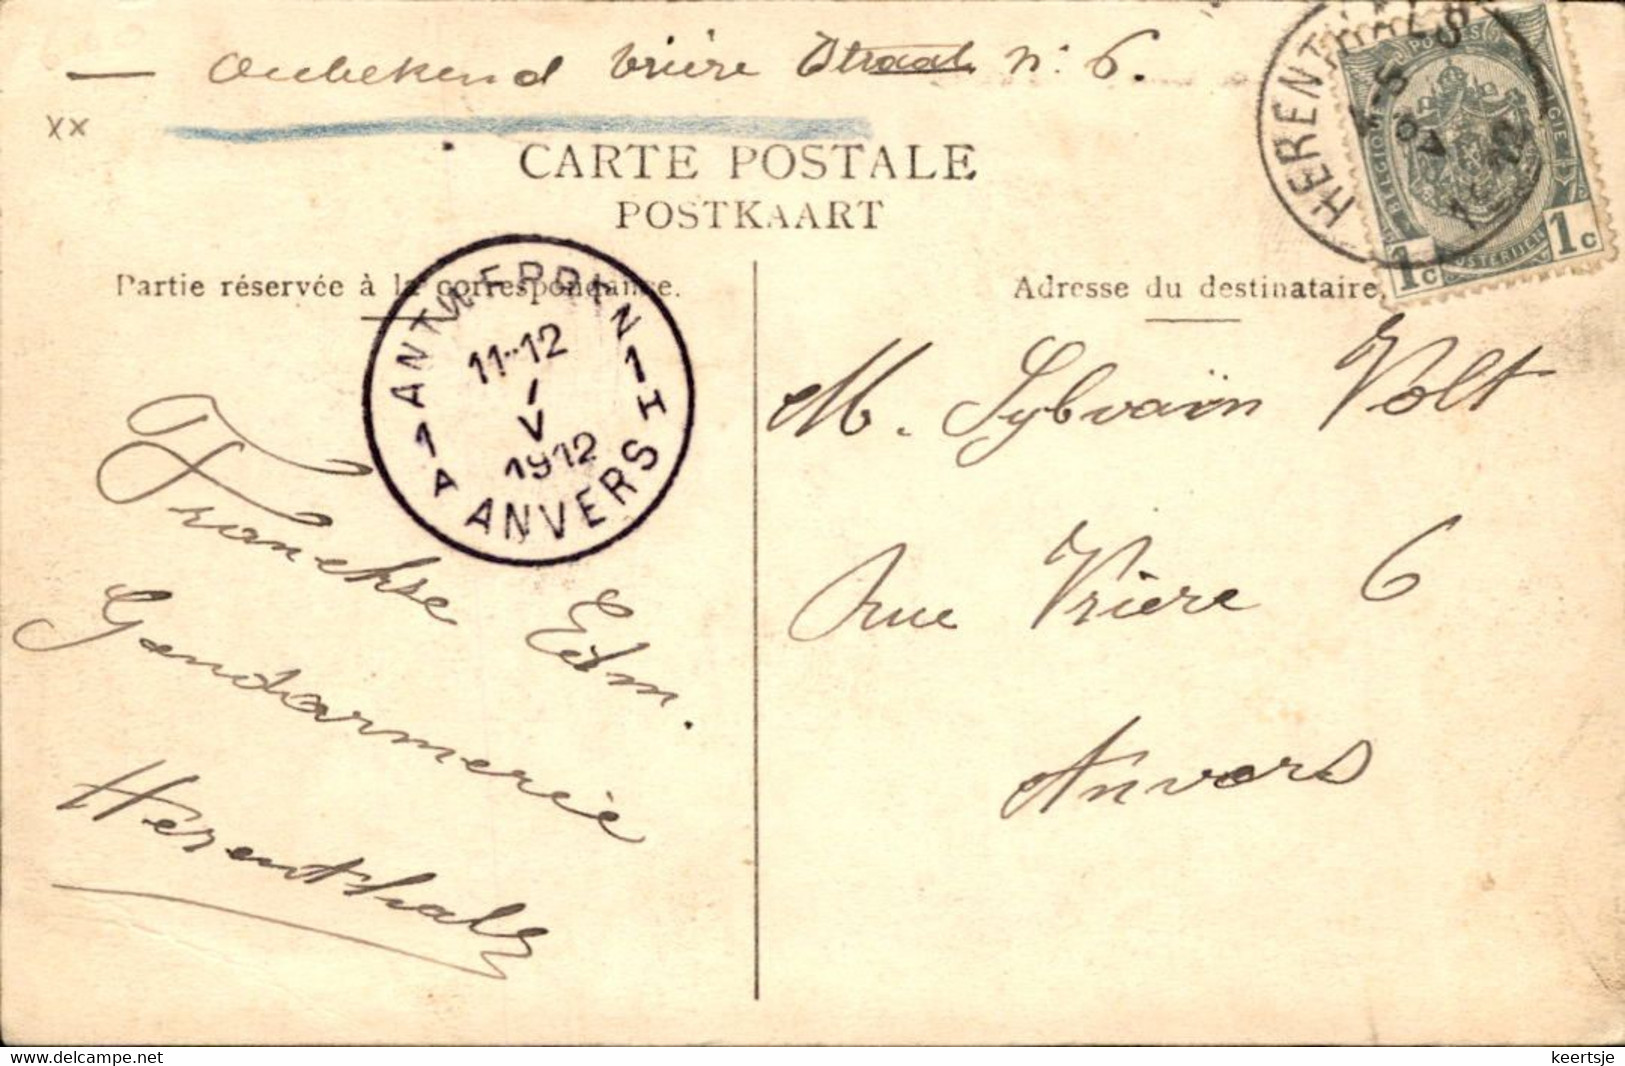 — Onbekend Vrière Straat N: 6.
xx
CARTE POSTALE
POSTKAART
Partie réservée à la correspondance.
Adresse du destinataire.
HERENTHALS
1912
BELGIQUE POSTES BELGIE
POSTERIJEN
1c 1c
ANTWERPEN 1
11-12
I
V
1912
1 A ANVERS 1 H
Franckse Edm.
Gendarmerie
Herenthals
M. Sylvaïn Volt
rue Vrière 6
Anvers
Te koop op delcampe.net
keertsje